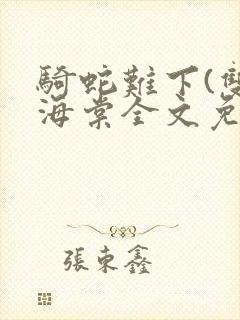 騎蛇難下(雙
海棠全文免
張東鑫